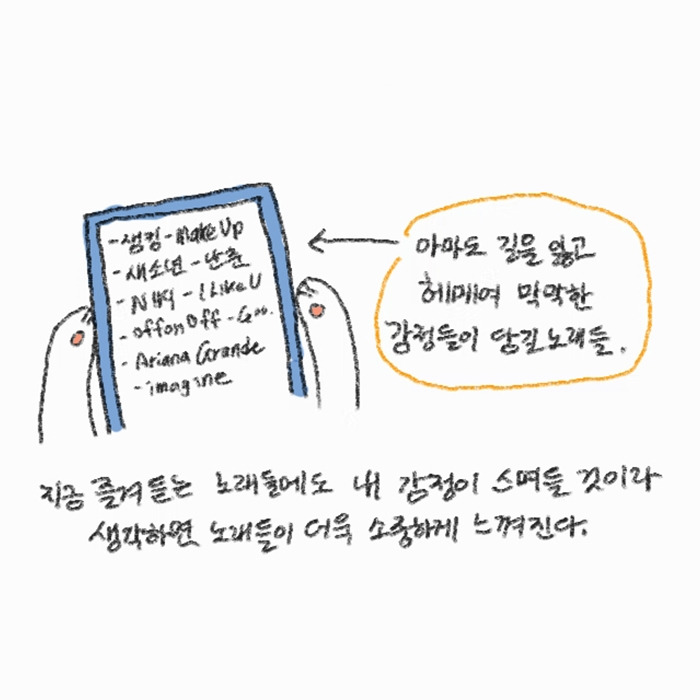 -샘킴-Make Up
-새소년-난춘
-NIKI-I Like U
-offonoff-Goo..
-Ariana Grande
-imagine
아마도 길을 잃고
헤메여 막막한
감정들이 담길 노래들.
지금 즐겨 듣는 노래들에도 내 감정이 스며들 것이라
생각하면 노래들이 더욱 소중하게 느껴진다.